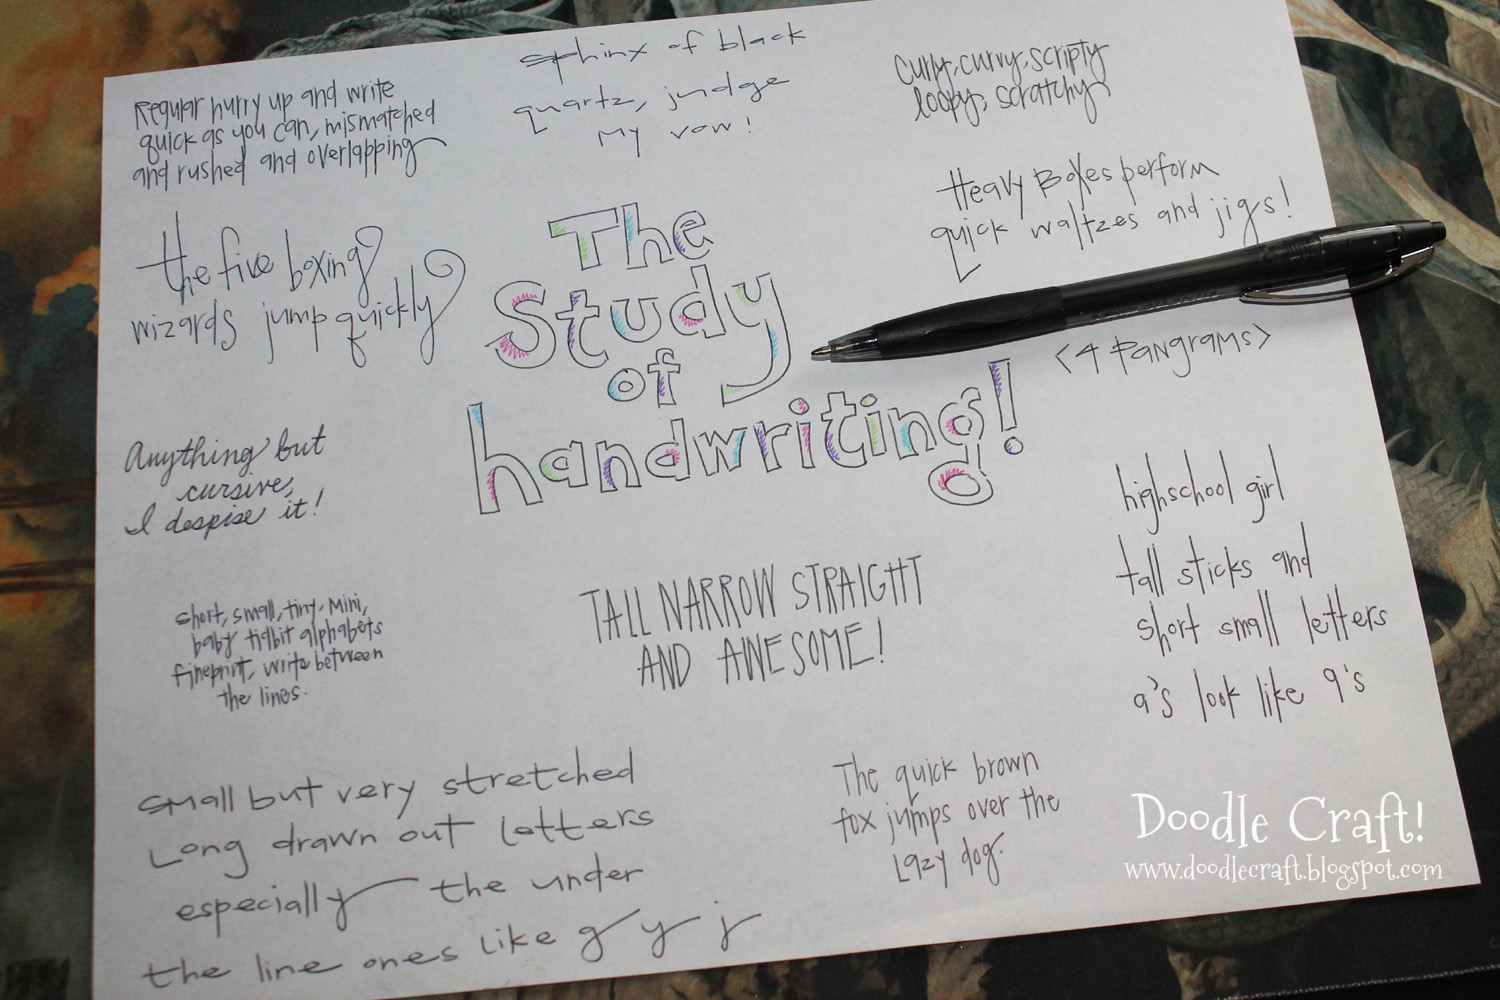 Regular hurry up and write
quick as you can, mismatched
and rushed and overlapping
sphinx of black
quartz, judge
my vow!
Curly, curvy, scripty
loopy, scratchy
the five boxing
wizards jump quickly
The
Study
of
handwriting!
Heavy Boxes perform
quick waltzes and jigs!
<4 PANGRAMS>
Anything but
cursive,
I despise it!
highschool girl
tall sticks and
short small letters
a's look like 9's
short, small, tiny, Mini,
baby tidbit alphabets
fineprint, write between
the lines.
TALL NARROW STRAIGHT
AND AWESOME!
small but very stretched
Long drawn out letters
especially the under
the line ones like g y j
The quick brown
fox jumps over the
Lazy dog.
Doodle Craft!
www.doodlecraft.blogspot.com